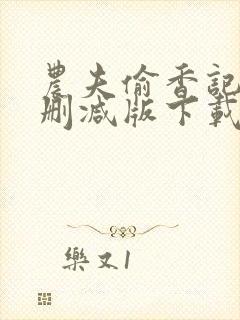 農夫偷香記
刪減版下載
樂又1